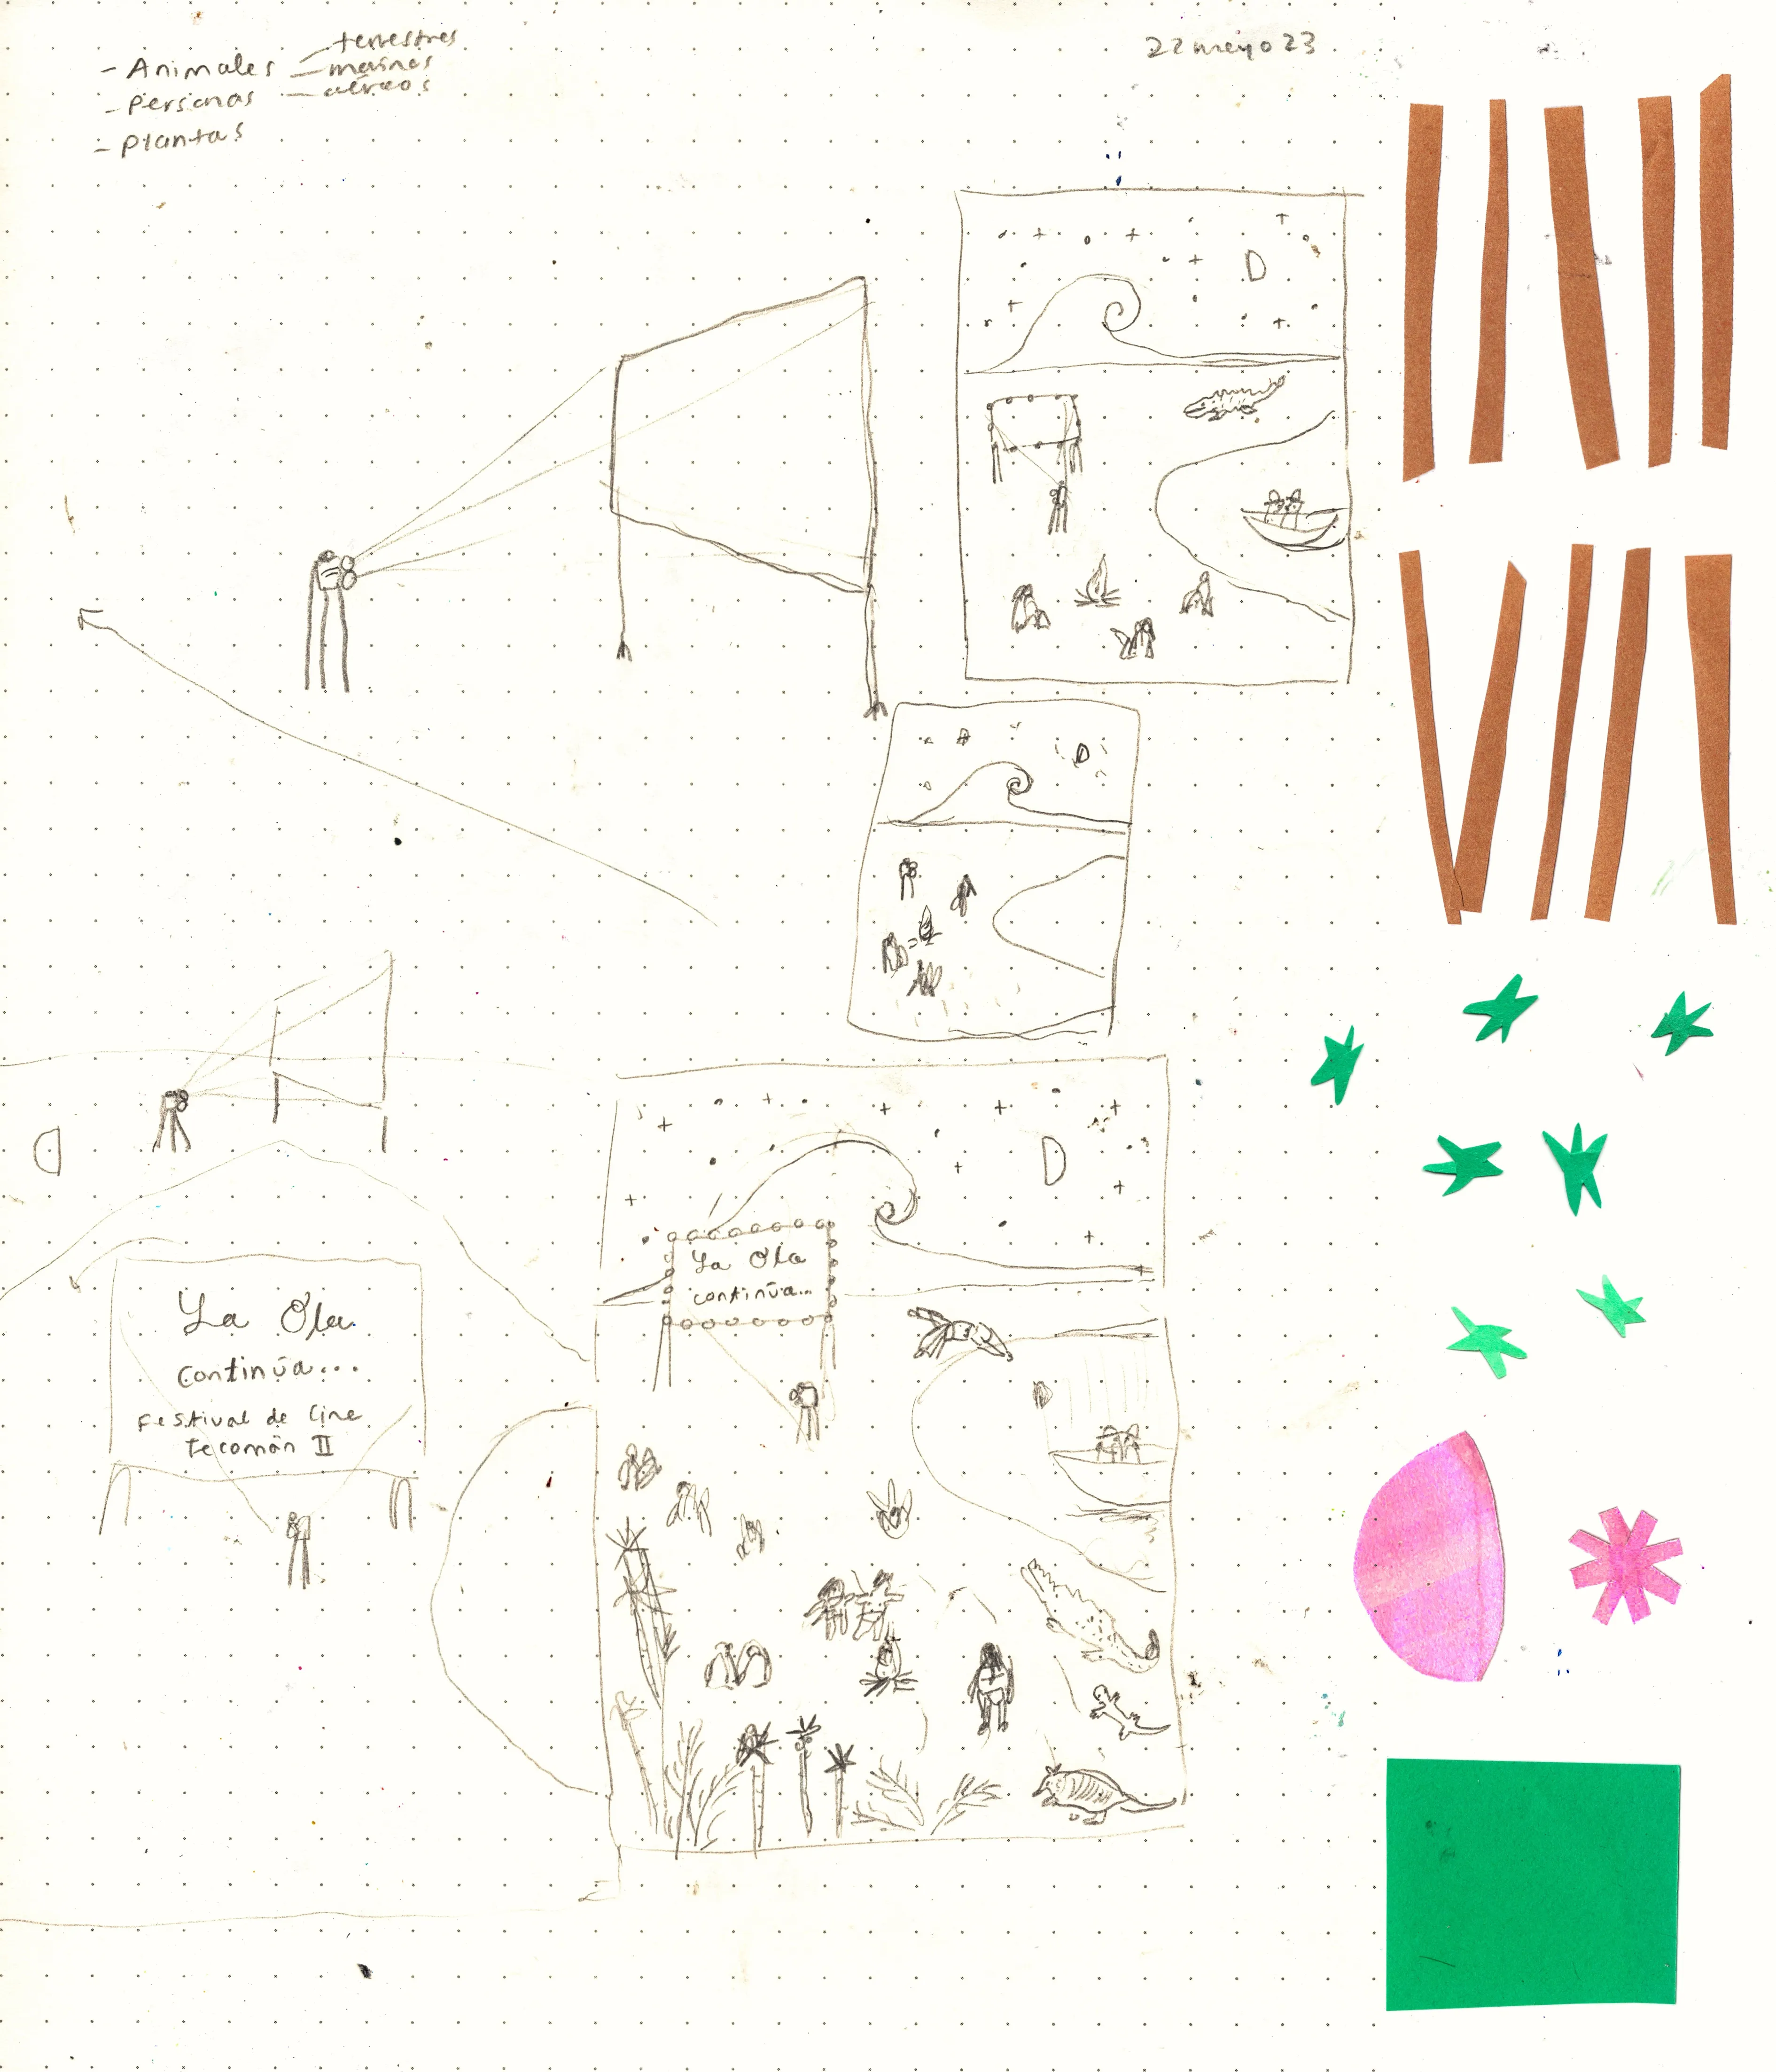 - Animales
terrestres
marinos
aéreos
- Personas
- Plantas
22 mayo 23
La Ola
continúa...
La Ola
continúa...
Festival de Cine
Tecomán II